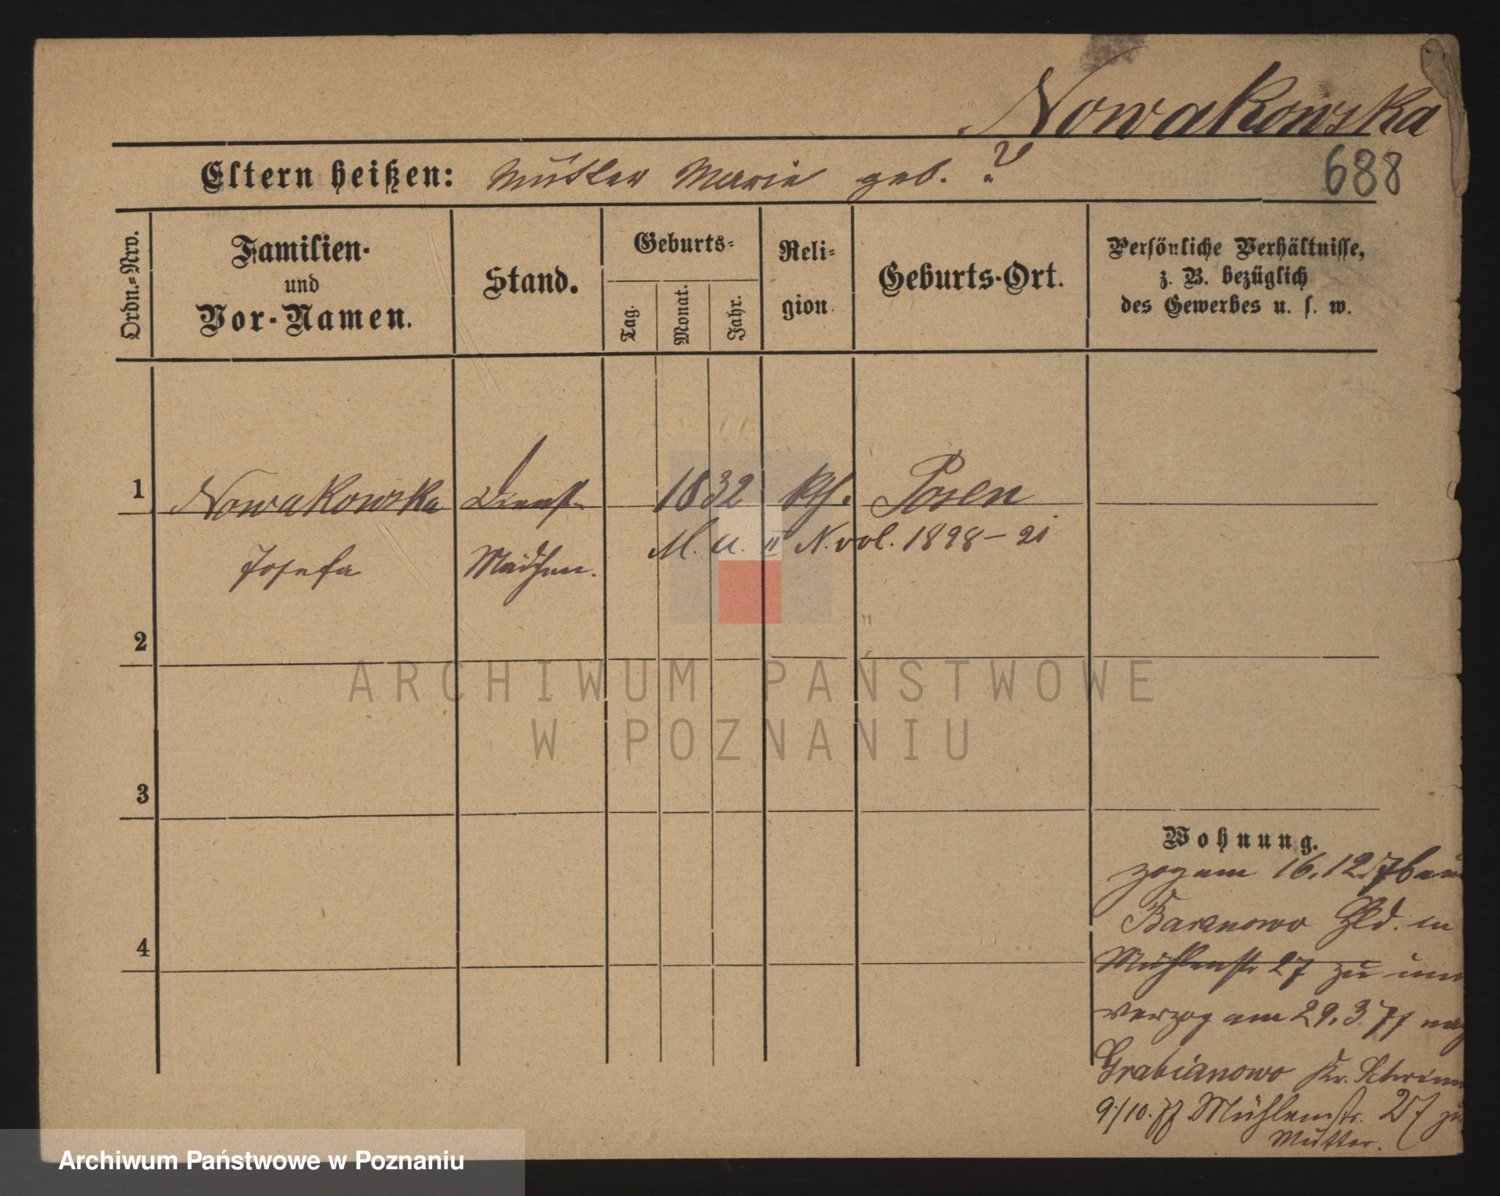 Nowakowska
688
Eltern heißen: Mutter Marie geb. ?
Ordn.-Nro.
Familien- und Vor-Namen.
Stand.
Geburts-
Tag.
Monat.
Jahr.
Reli-
gion
Geburts-Ort.
Persönliche Verhältnisse,
z. B. bezüglich
des Gewerbes u. s. w.
1 Nowakowska Dienst 1832 kth. Posen
M. u. " N. vol. 1898-21
Josefa Mädchen.
2
3
4
ARCHIWUM PAŃSTWOWE
W POZNANIU
Wohnung.
zog am 16.12.76 aus
Baranowo Hld. in
Mühlenstr 27 zu
verzog am 29.3.77 nach
Grabianowo Kr. Schrimm
9./10.77 Mühlenstr. 27 zu
Mutter.
Archiwum Państwowe w Poznaniu